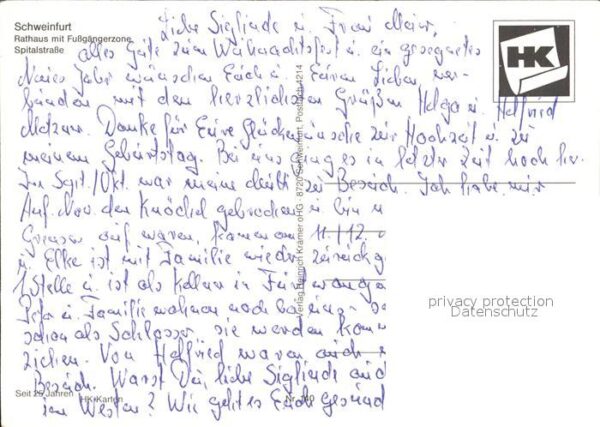 Schweinfurt
Rathaus mit Fußgängerzone
Spitalstraße
HK
Liebe Sieglinde u. Frau Meier,
alles Gute zum Weihnachtsfest u. ein gesegnetes
Neues Jahr wünschen Euch u. Euren Lieben ver-
bunden mit den herzlichsten Grüßen Helga u. Helfried
Metzner. Danke für Eure Glückwünsche zur Hochzeit u. zu
meinem Geburtstag. Bei uns ging es in letzter Zeit hoch her.
Im Sept./Okt. war meine zu Besuch. Ich habe mir
Auf. Nov. den Knöchel gebrochen u. bin u
Grenzen auf waren, kamen am 11./12.
u. Elke ist mit Familie wieder zurück
1 Stelle u. ist als Kellner in
u. Familie wohnen noch bei uns
schon als Schlosser sie werden
ziehen. Von Helfried waren auch
Besuch. Warst Du, liebe Sieglinde auch
im Westen? Wie geht es Euch gesund
Verlag Heinrich Krämer oHG · 8720 Schweinfurt, Postfach 4214
Seit 25 Jahren HK-Karten
Nr. 140
privacy protection
Datenschutz